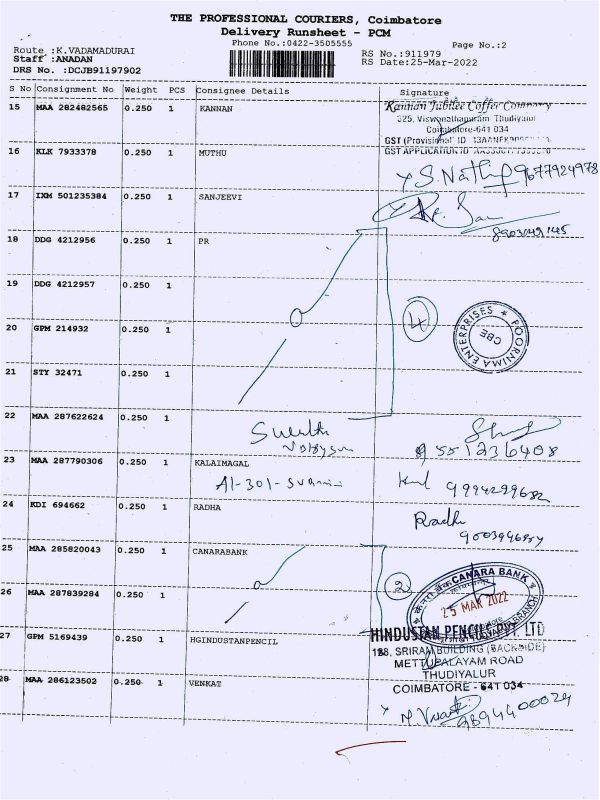 THE PROFESSIONAL COURIERS, Coimbatore
Delivery Runsheet - PCM
Phone No.:0422-3505555
Page No.:2
Route :K.VADAMADURAI
Staff :ANADAN
DRS No. :DCJB91197902
RS No.:911979
RS Date:25-Mar-2022
S No Consignment No Weight PCS Consignee Details Signature
15 MAA 282482565 0.250 1 KANNAN
Kannan Jubilee Coffee Company
325, Viswanathapuram Thudiyalur
Coimbatore-641 034
GST (Provisional ID
16 KLK 7933378 0.250 1 MUTHU
S. Nath 9677924978
17 IXM 501235384 0.250 1 SANJEEVI
18 DDG 4212956 0.250 1 PR
19 DDG 4212957 0.250 1
4
POORNIMA ENTERPRISES
CBE
20 GPM 214932 0.250 1
21 STY 32471 0.250 1
22 MAA 287622624 0.250 1
9551236408
23 MAA 287790306 0.250 1 KALAIMAGAL
A1-301-
24 KDI 694662 0.250 1 RADHA
Radhu
25 MAA 285820043 0.250 1 CANARABANK
2
CANARA BANK
25 MAR 2022
26 MAA 287839284 0.250 1
27 GPM 5169439 0.250 1 HGINDUSTANPENCIL
HINDUSTAN PENCILS PVT. LTD
188, SRIRAM BUILDING (BACKSIDE)
METTUPALAYAM ROAD
THUDIYALUR
COIMBATORE - 641 034
28 MAA 286123502 0.250 1 VENKAT
9894400024